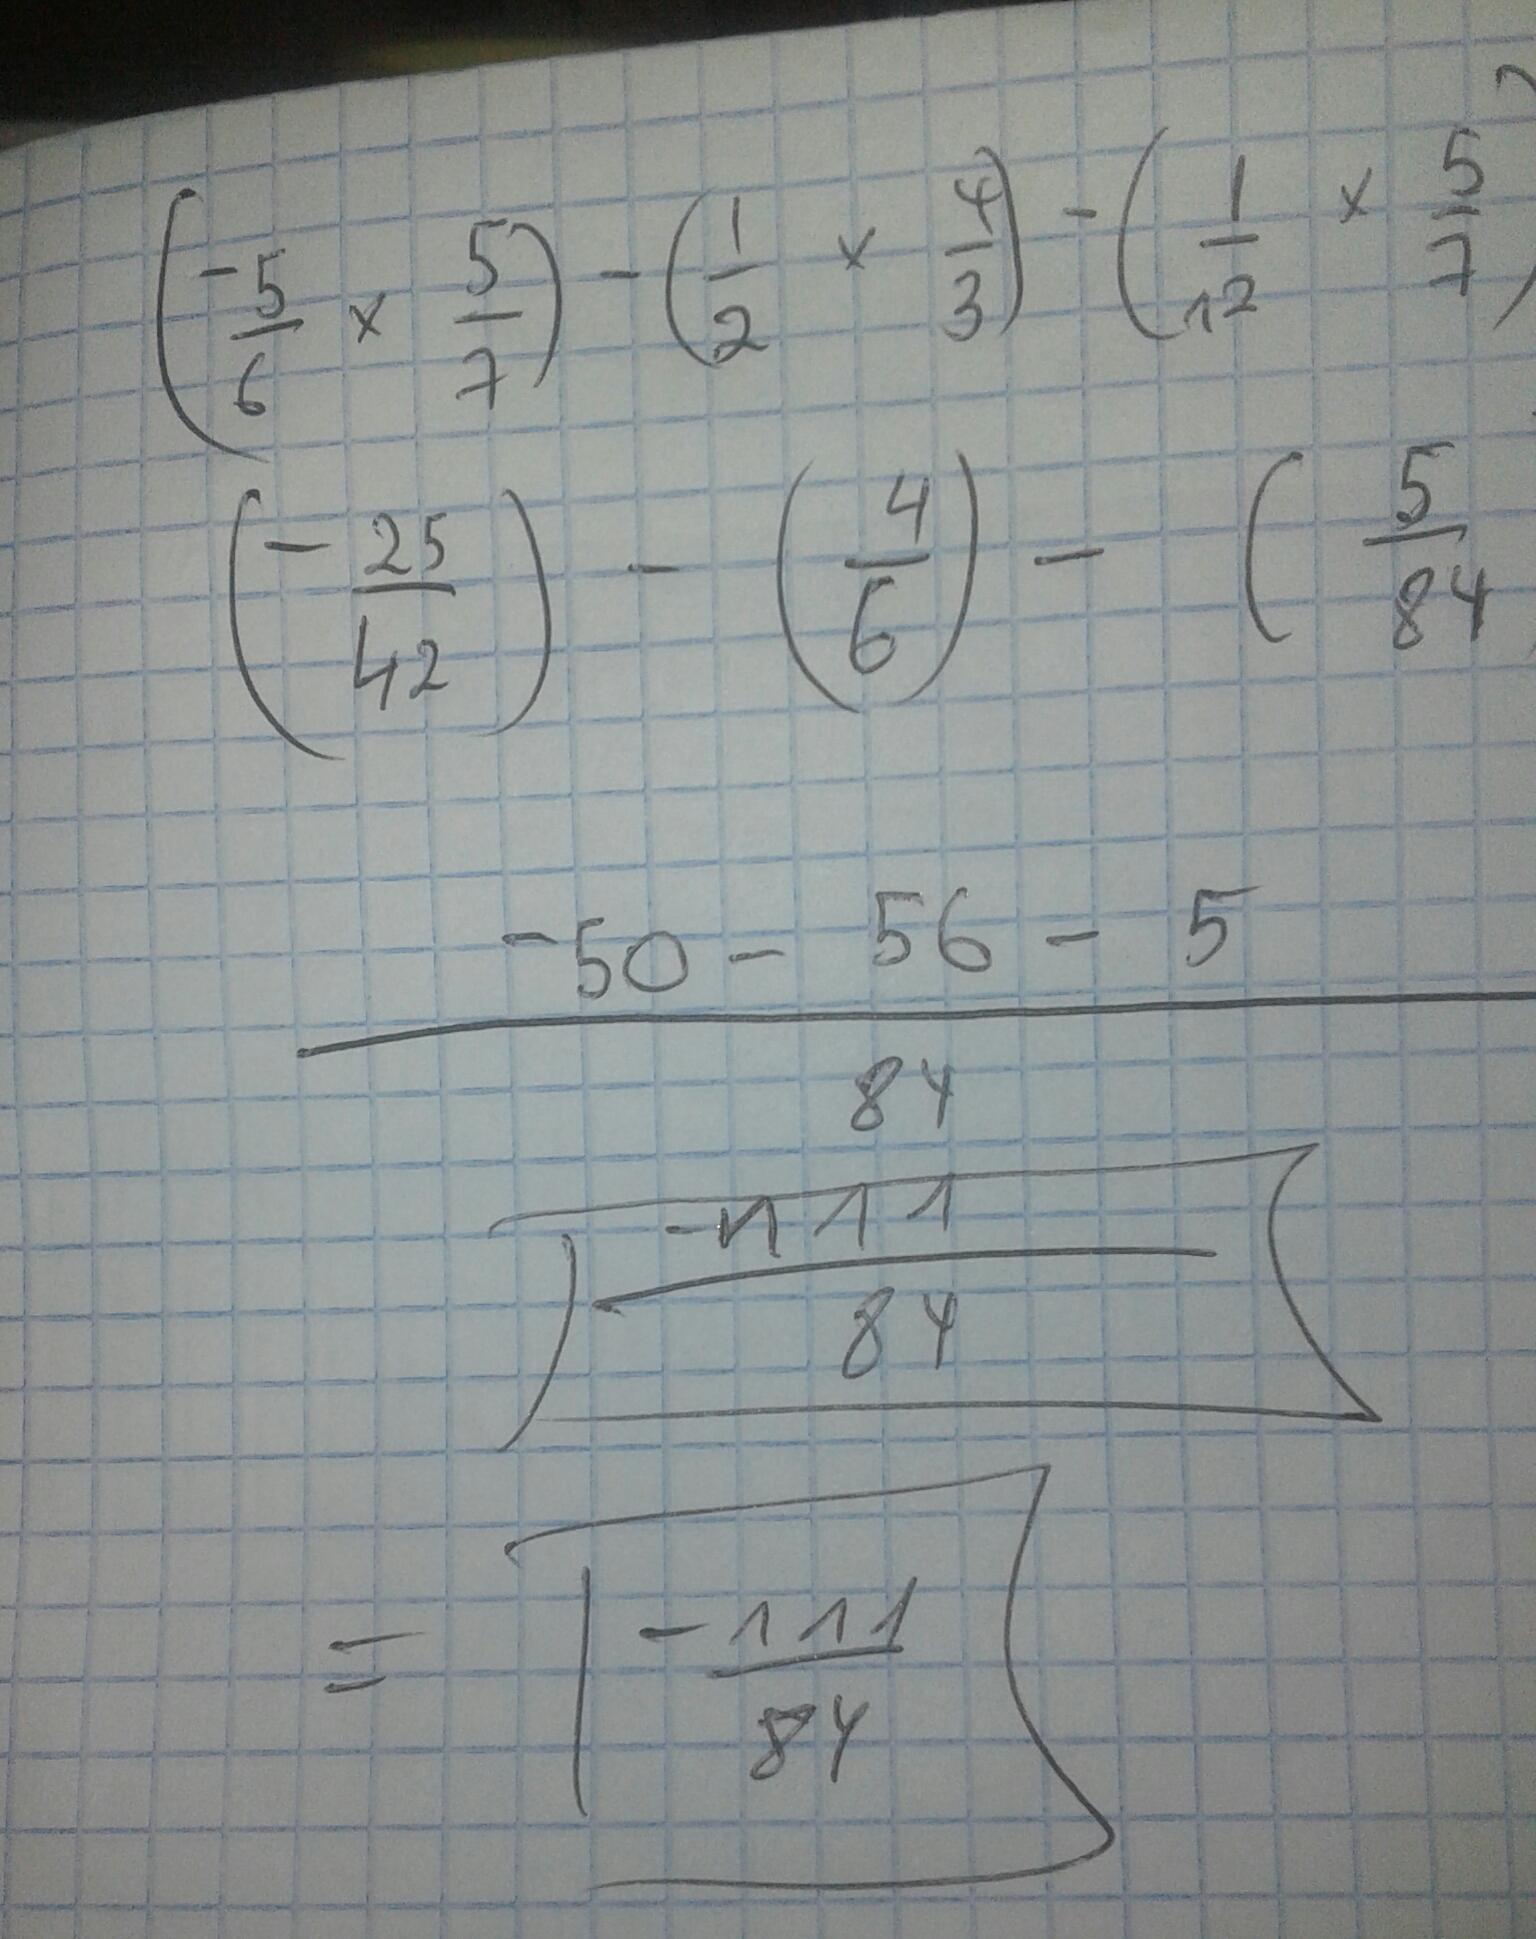 (-5/6 × 5/7) - (1/2 × 4/3) - (1/12 × 5/7)
(-25/42) - (4/6) - (5/84
-50 - 56 - 5
84
-111
84
= -111/84